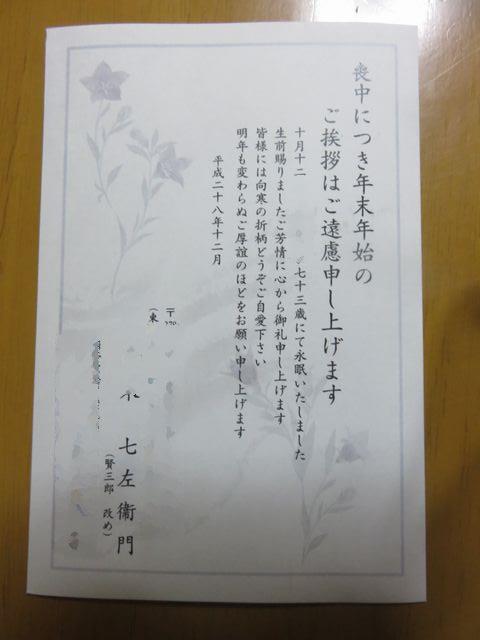 喪中につき年末年始の
ご挨拶はご遠慮申し上げます
十月十二 七十三歳にて永眠いたしました
生前賜りましたご芳情に心から御礼申し上げます
皆様には向寒の折柄どうぞご自愛下さい
明年も変わらぬご厚誼のほどをお願い申し上げます
平成二十八年十二月
〒
(東
七左衞門
(賢三郎 改め)